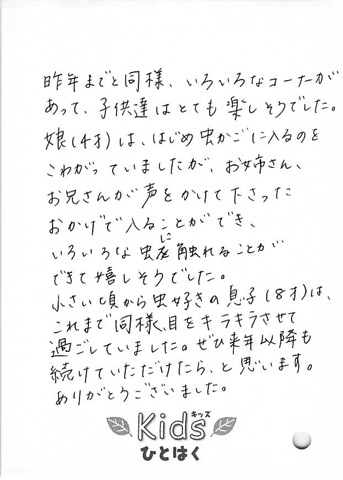 昨年までと同様、いろいろなコーナーが
あって、子供達はとても楽しそうでした。
娘(4才)は、はじめ虫かごに入るのを
こわがっていましたが、お姉さん、
お兄さんが声をかけて下さった
おかげで入ることができ、
いろいろな虫に触れることが
できて嬉しそうでした。
小さい頃から虫好きの息子(8才)は、
これまで同様、目をキラキラさせて
過ごしていました。ぜひ来年以降も
続けていただけたら、と思います。
ありがとうございました。
Kidsキッズ
ひとはく